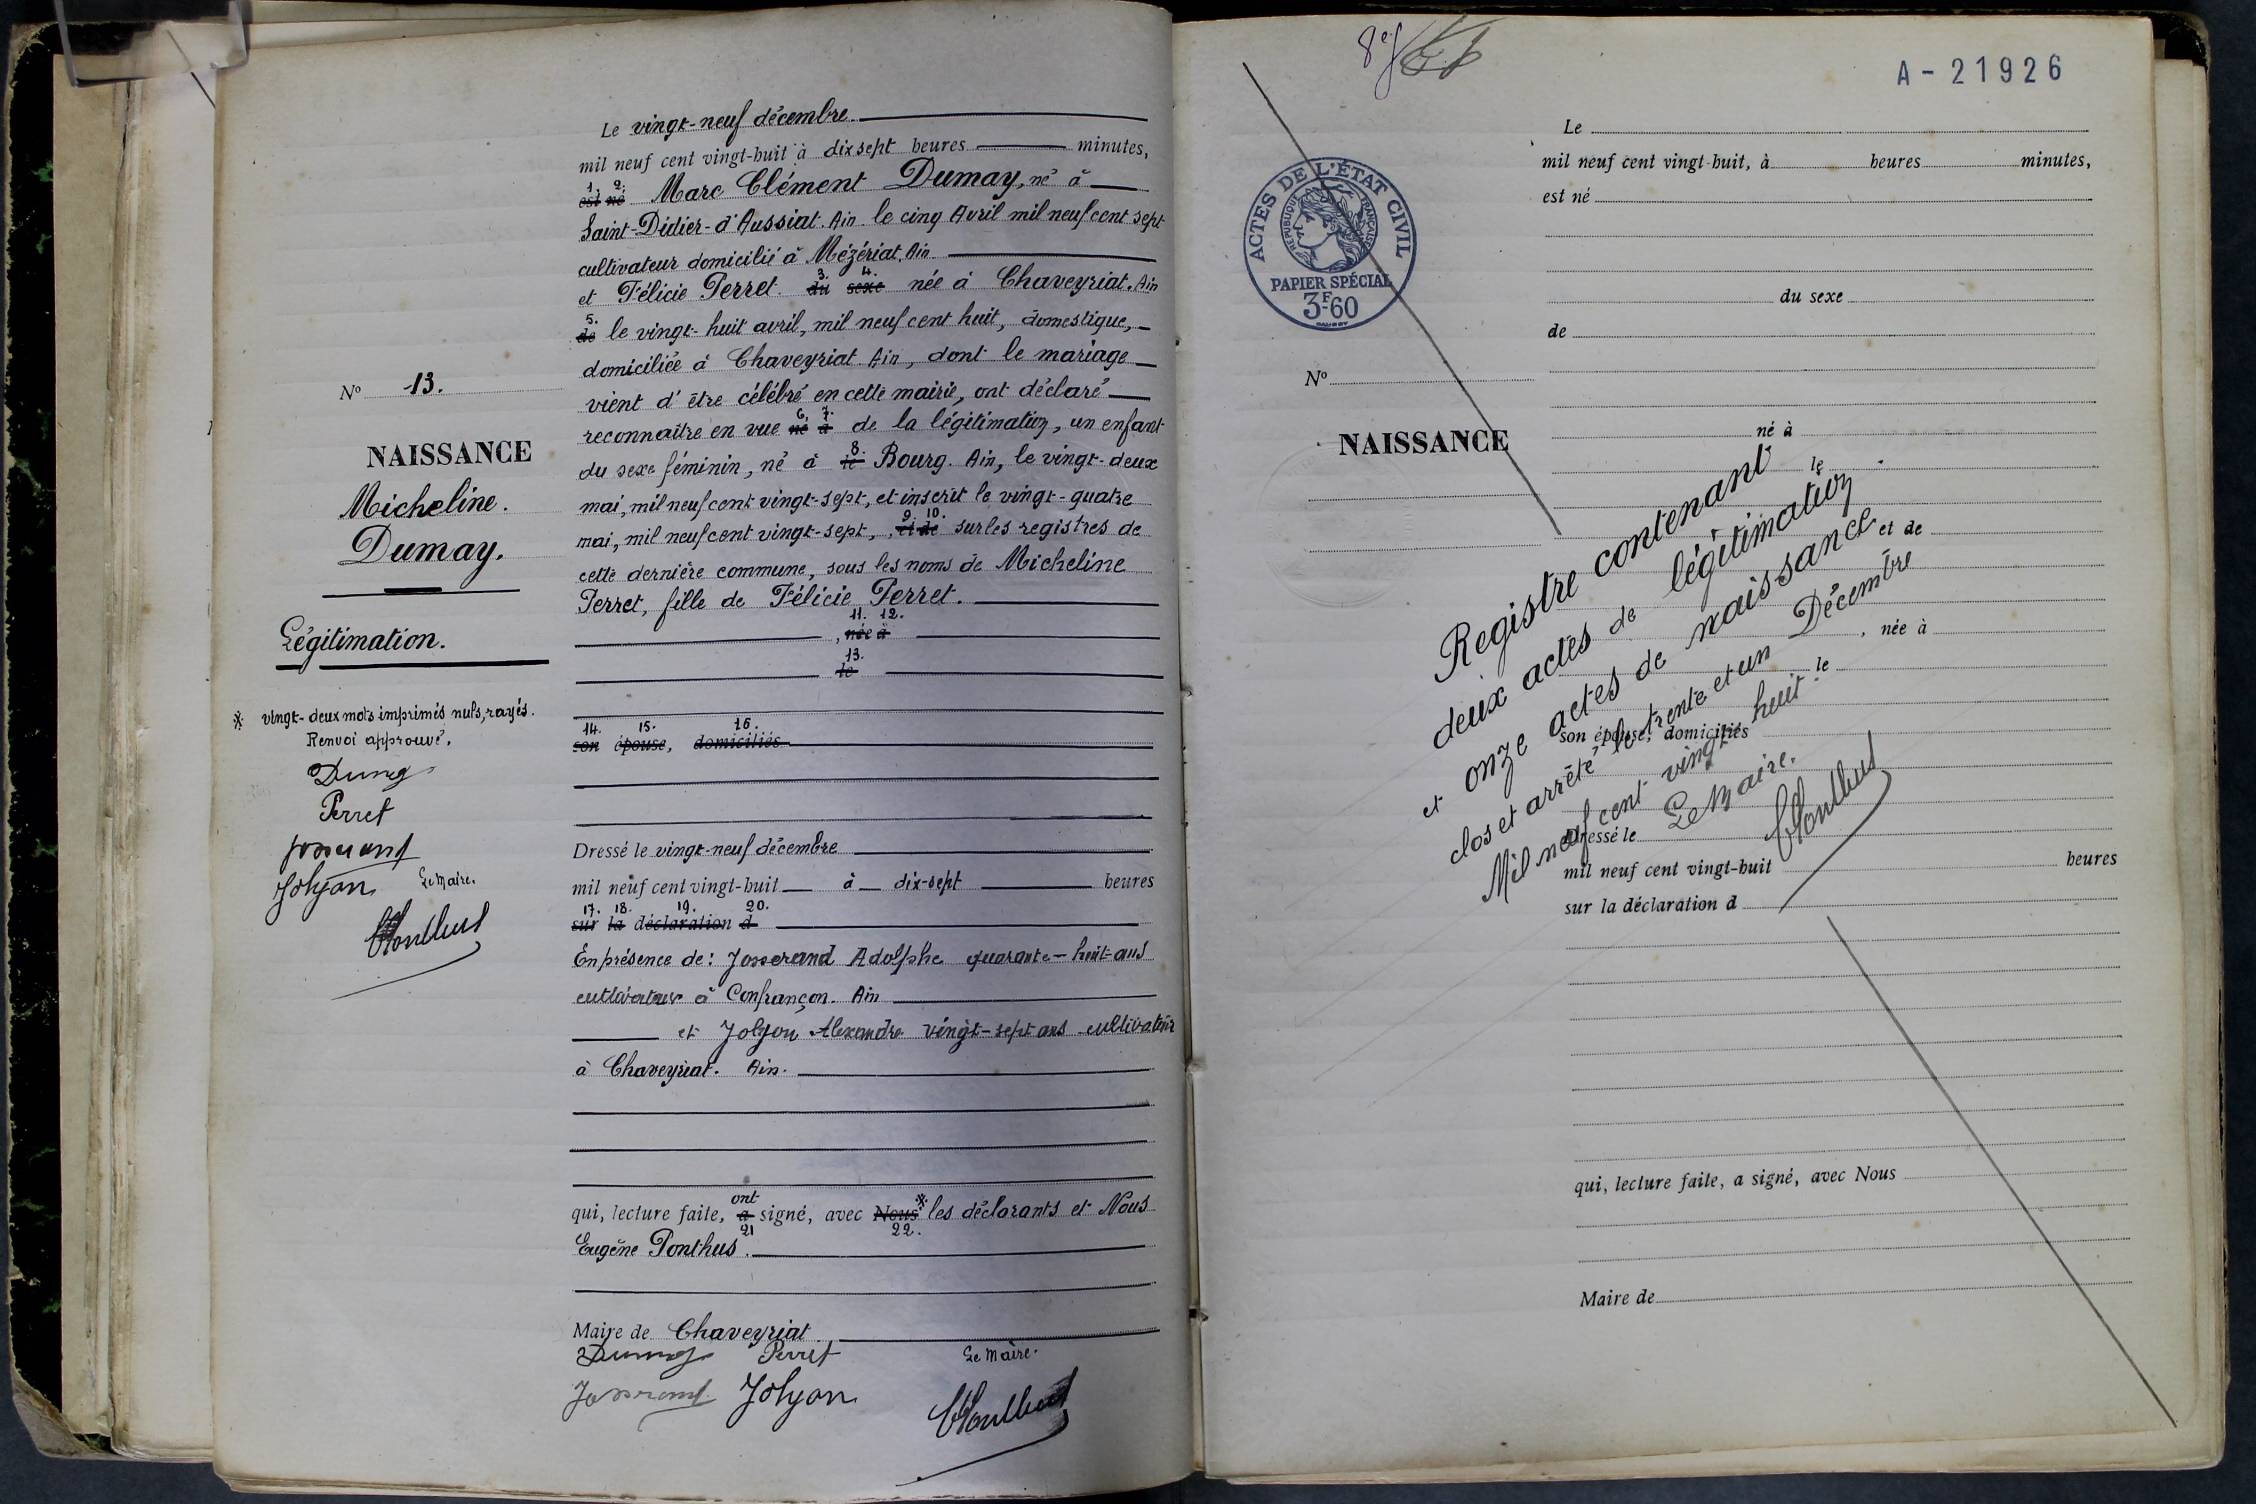 N° 13.
NAISSANCE
Micheline.
Dumay.
Légitimation.
※ vingt-deux mots imprimés nuls, rayés.
Renvoi approuvé.
Perret
Josserand
Jolyon Le Maire.
Le vingt-neuf décembre
mil neuf cent vingt-huit à dix sept heures minutes,
1. 2.
est né Marc Clément Dumay, né à
Saint-Didier-d'Aussiat. Ain. le cinq Avril mil neuf cent sept
cultivateur domicilié à Mézériat. Ain
3. 4.
et Félicie Perret. du sexe née à Chaveyriat. Ain
5.
de le vingt-huit avril, mil neuf cent huit, domestique,
domiciliée à Chaveyriat. Ain, dont le mariage
vient d'être célébré en cette mairie, ont déclaré
6. 7.
reconnaître en vue né à de la légitimation, un enfant
8.
du sexe féminin, né à le Bourg. Ain, le vingt-deux
mai, mil neuf cent vingt-sept, et inscrit le vingt-quatre
9. 10.
mai, mil neuf cent vingt-sept, et de sur les registres de
cette dernière commune, sous les noms de Micheline
Perret, fille de Félicie Perret.
11. 12.
, née à
13.
le
14. 15. 16.
son épouse, domiciliés
Dressé le vingt-neuf décembre
mil neuf cent vingt-huit à dix-sept heures
17. 18. 19. 20.
sur la déclaration d
En présence de: Josserand Adolphe quarante-huit ans
cultivateur à Confrançon. Ain
et Jolyon Alexandre vingt-sept ans cultivateur
à Chaveyriat. Ain.
ont ※
qui, lecture faite, a signé, avec Nous les déclarants et Nous
21 22.
Eugène Ponthus.
Maire de Chaveyriat.
Perret Le Maire.
Josserand Jolyon
A-21926
ACTES DE L'ÉTAT CIVIL
RÉPUBLIQUE FRANÇAISE
PAPIER SPÉCIAL
3F-60
N°
NAISSANCE
Le
mil neuf cent vingt-huit, à heures minutes,
est né
du sexe
de
né à
le
et de
, née à
le
son épouse, domiciliés
Dressé le
mil neuf cent vingt-huit heures
sur la déclaration d
qui, lecture faite, a signé, avec Nous
Maire de
Registre contenant
deux actes de légitimation
et onze actes de naissance
clos et arrêté le trente et un Décembre
Mil neuf cent vingt huit.
Le Maire.